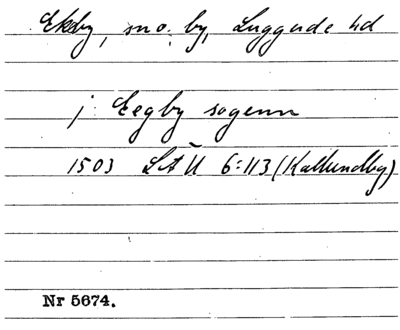 Ekeby, sno. by, Luggude hd
j Eegby sogenn
1503 LAÜ 6:113 (Kallundbg)
Nr 5674.